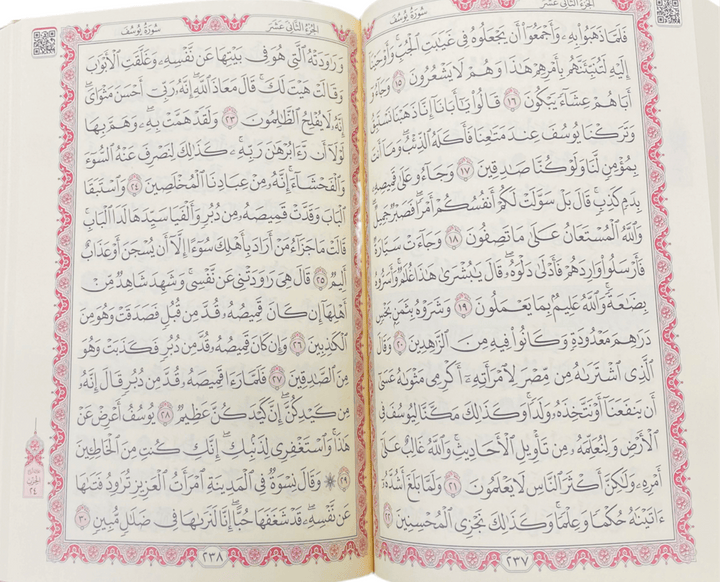 سُورَةُ يُوسُفَ
الجُزْءُ الثَّانِي عَشَرَ
فَلَمَّا ذَهَبُوا۟ بِهِۦ وَأَجْمَعُوٓا۟ أَن يَجْعَلُوهُ فِى غَيَٰبَتِ ٱلْجُبِّ ۚ وَأَوْحَيْنَآ
إِلَيْهِ لَتُنَبِّئَنَّهُم بِأَمْرِهِمْ هَٰذَا وَهُمْ لَا يَشْعُرُونَ ١٥ وَجَآءُوٓ
أَبَاهُمْ عِشَآءً يَبْكُونَ ١٦ قَالُوا۟ يَٰٓأَبَانَآ إِنَّا ذَهَبْنَا نَسْتَبِقُ
وَتَرَكْنَا يُوسُفَ عِندَ مَتَٰعِنَا فَأَكَلَهُ ٱلذِّئْبُ ۖ وَمَآ أَنتَ
بِمُؤْمِنٍ لَّنَا وَلَوْ كُنَّا صَٰدِقِينَ ١٧ وَجَآءُو عَلَىٰ قَمِيصِهِۦ
بِدَمٍ كَذِبٍ ۚ قَالَ بَلْ سَوَّلَتْ لَكُمْ أَنفُسُكُمْ أَمْرًا ۖ فَصَبْرٌ جَمِيلٌ ۖ
وَٱللَّهُ ٱلْمُسْتَعَانُ عَلَىٰ مَا تَصِفُونَ ١٨ وَجَآءَتْ سَيَّارَةٌ
فَأَرْسَلُوا۟ وَارِدَهُمْ فَأَدْلَىٰ دَلْوَهُۥ ۖ قَالَ يَٰبُشْرَىٰ هَٰذَا غُلَٰمٌ ۚ وَأَسَرُّوهُ
بِضَٰعَةً ۚ وَٱللَّهُ عَلِيمٌۢ بِمَا يَعْمَلُونَ ١٩ وَشَرَوْهُ بِثَمَنٍۭ بَخْسٍ
دَرَٰهِمَ مَعْدُودَةٍ وَكَانُوا۟ فِيهِ مِنَ ٱلزَّٰهِدِينَ ٢٠ وَقَالَ
ٱلَّذِى ٱشْتَرَىٰهُ مِن مِّصْرَ لِٱمْرَأَتِهِۦٓ أَكْرِمِى مَثْوَىٰهُ عَسَىٰٓ
أَن يَنفَعَنَآ أَوْ نَتَّخِذَهُۥ وَلَدًا ۚ وَكَذَٰلِكَ مَكَّنَّا لِيُوسُفَ فِى
ٱلْأَرْضِ وَلِنُعَلِّمَهُۥ مِن تَأْوِيلِ ٱلْأَحَادِيثِ ۚ وَٱللَّهُ غَالِبٌ عَلَىٰٓ
أَمْرِهِۦ وَلَٰكِنَّ أَكْثَرَ ٱلنَّاسِ لَا يَعْلَمُونَ ٢١ وَلَمَّا بَلَغَ أَشُدَّهُۥٓ
ءَاتَيْنَٰهُ حُكْمًا وَعِلْمًا ۚ وَكَذَٰلِكَ نَجْزِى ٱلْمُحْسِنِينَ ٢٢
٢٣٧
الجُزْءُ الثَّانِي عَشَرَ
سُورَةُ يُوسُفَ
وَرَٰوَدَتْهُ ٱلَّتِى هُوَ فِى بَيْتِهَا عَن نَّفْسِهِۦ وَغَلَّقَتِ ٱلْأَبْوَٰبَ
وَقَالَتْ هَيْتَ لَكَ ۚ قَالَ مَعَاذَ ٱللَّهِ ۖ إِنَّهُۥ رَبِّىٓ أَحْسَنَ مَثْوَاىَ ۖ
إِنَّهُۥ لَا يُفْلِحُ ٱلظَّٰلِمُونَ ٢٣ وَلَقَدْ هَمَّتْ بِهِۦ ۖ وَهَمَّ بِهَا
لَوْلَآ أَن رَّءَا بُرْهَٰنَ رَبِّهِۦ ۚ كَذَٰلِكَ لِنَصْرِفَ عَنْهُ ٱلسُّوٓءَ
وَٱلْفَحْشَآءَ ۚ إِنَّهُۥ مِنْ عِبَادِنَا ٱلْمُخْلَصِينَ ٢٤ وَٱسْتَبَقَا
ٱلْبَابَ وَقَدَّتْ قَمِيصَهُۥ مِن دُبُرٍ وَأَلْفَيَا سَيِّدَهَا لَدَا ٱلْبَابِ ۚ
قَالَتْ مَا جَزَآءُ مَنْ أَرَادَ بِأَهْلِكَ سُوٓءًا إِلَّآ أَن يُسْجَنَ أَوْ عَذَابٌ
أَلِيمٌ ٢٥ قَالَ هِىَ رَٰوَدَتْنِى عَن نَّفْسِى ۚ وَشَهِدَ شَاهِدٌ مِّنْ
أَهْلِهَآ إِن كَانَ قَمِيصُهُۥ قُدَّ مِن قُبُلٍ فَصَدَقَتْ وَهُوَ مِنَ
ٱلْكَٰذِبِينَ ٢٦ وَإِن كَانَ قَمِيصُهُۥ قُدَّ مِن دُبُرٍ فَكَذَبَتْ وَهُوَ
مِنَ ٱلصَّٰدِقِينَ ٢٧ فَلَمَّا رَءَا قَمِيصَهُۥ قُدَّ مِن دُبُرٍ قَالَ إِنَّهُۥ
مِن كَيْدِكُنَّ ۖ إِنَّ كَيْدَكُنَّ عَظِيمٌ ٢٨ يُوسُفُ أَعْرِضْ عَنْ
هَٰذَا ۚ وَٱسْتَغْفِرِى لِذَنۢبِكِ ۖ إِنَّكِ كُنتِ مِنَ ٱلْخَاطِـِٔينَ
٢٩ ۞ وَقَالَ نِسْوَةٌ فِى ٱلْمَدِينَةِ ٱمْرَأَتُ ٱلْعَزِيزِ تُرَٰوِدُ فَتَىٰهَا
عَن نَّفْسِهِۦ ۖ قَدْ شَغَفَهَا حُبًّا ۖ إِنَّا لَنَرَىٰهَا فِى ضَلَٰلٍ مُّبِينٍ ٣٠
الحزب
٢٤
٢٣٨